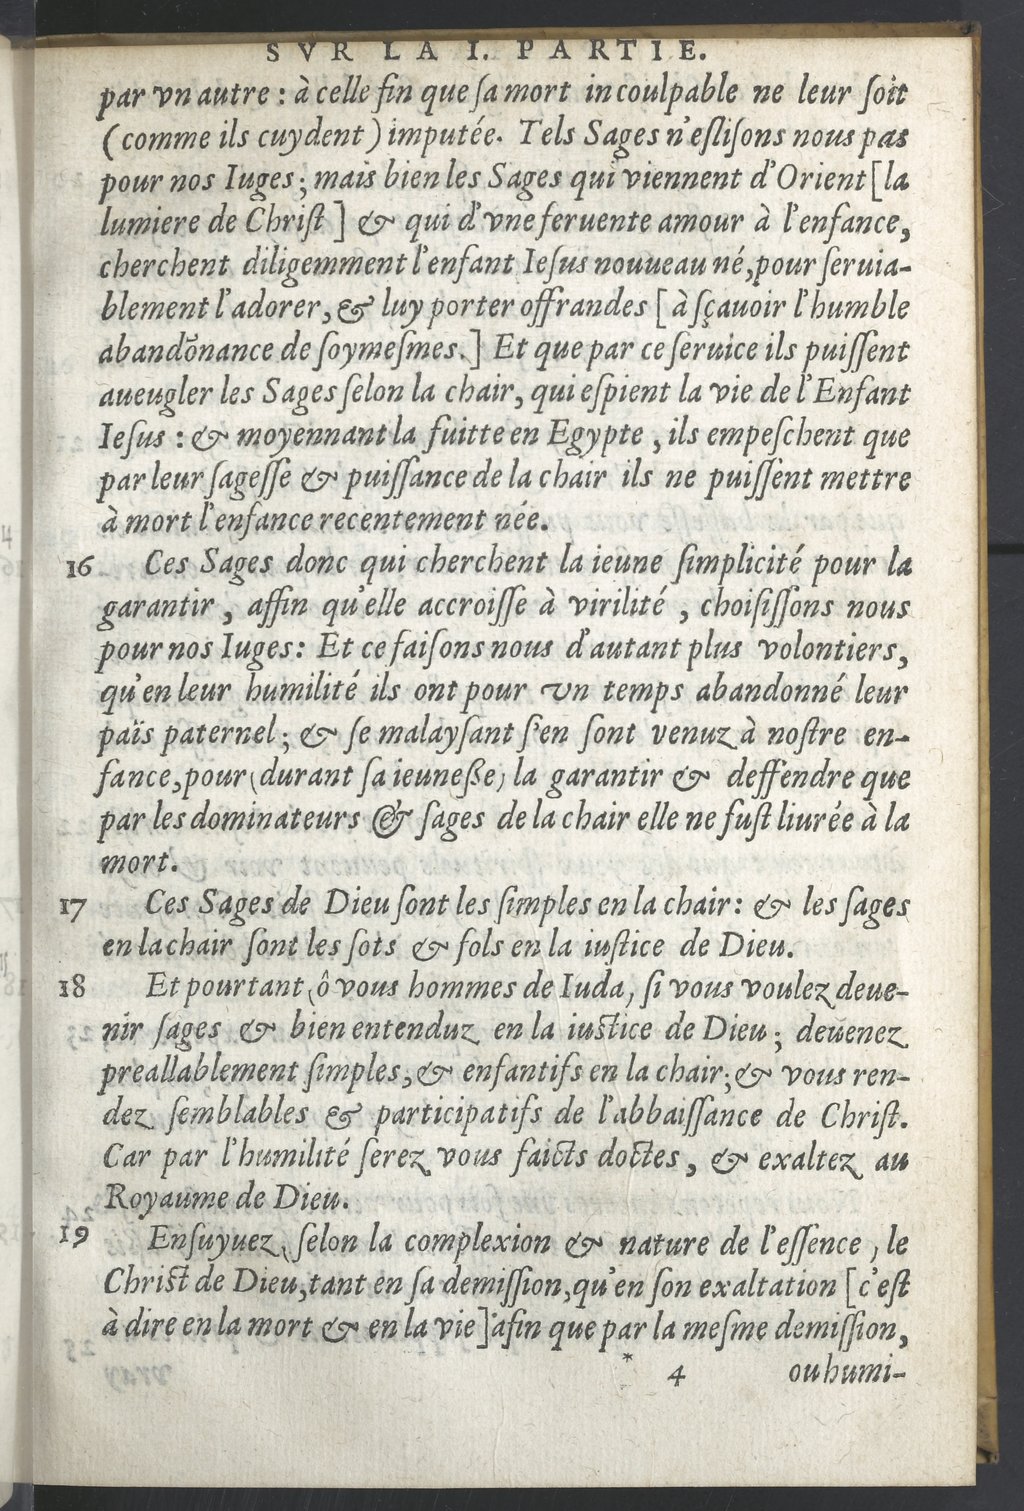 SVR LA I. PARTIE.
par vn autre : à celle fin que ſa mort incoulpable ne leur ſoit
(comme ils cuydent) imputée. Tels Sages n'eſliſons nous pas
pour nos Iuges; mais bien les Sages qui viennent d'Orient [la
lumiere de Chriſt] & qui d'vne feruente amour à l'enfance,
cherchent diligemment l'enfant Ieſus nouueau né, pour ſeruia-
blement l'adorer, & luy porter offrandes [à ſçauoir l'humble
abandõnance de ſoymeſmes.] Et que par ce ſeruice ils puiſſent
aueugler les Sages ſelon la chair, qui eſpient la vie de l'Enfant
Ieſus : & moyennant la fuitte en Egypte, ils empeſchent que
par leur ſageſſe & puiſſance de la chair ils ne puiſſent mettre
à mort l'enfance recentement née.
16 Ces Sages donc qui cherchent la ieune ſimplicité pour la
garantir, affin qu'elle accroiſſe à virilité, choiſiſſons nous
pour nos Iuges: Et ce faiſons nous d'autant plus volontiers,
qu'en leur humilité ils ont pour vn temps abandonné leur
païs paternel; & ſe malayſant ſ'en ſont venuz à noſtre en-
fance, pour (durant ſa ieuneße) la garantir & deffendre que
par les dominateurs & ſages de la chair elle ne fuſt liurée à la
mort.
17 Ces Sages de Dieu ſont les ſimples en la chair: & les ſages
en la chair ſont les ſots & fols en la iuſtice de Dieu.
18 Et pourtant (ô vous hommes de Iuda) ſi vous voulez deue-
nir ſages & bien entenduz en la iuſtice de Dieu; deuenez
preallablement ſimples, & enfantifs en la chair; & vous ren-
dez ſemblables & participatifs de l'abbaiſſance de Chriſt.
Car par l'humilité ſerez vous faicts doctes, & exaltez au
Royaume de Dieu.
19 Enſuyuez (ſelon la complexion & nature de l'eſſence) le
Chriſt de Dieu, tant en ſa demiſſion, qu'en ſon exaltation [c'eſt
à dire en la mort & en la vie] afin que par la meſme demiſſion,
* 4 ou humi-